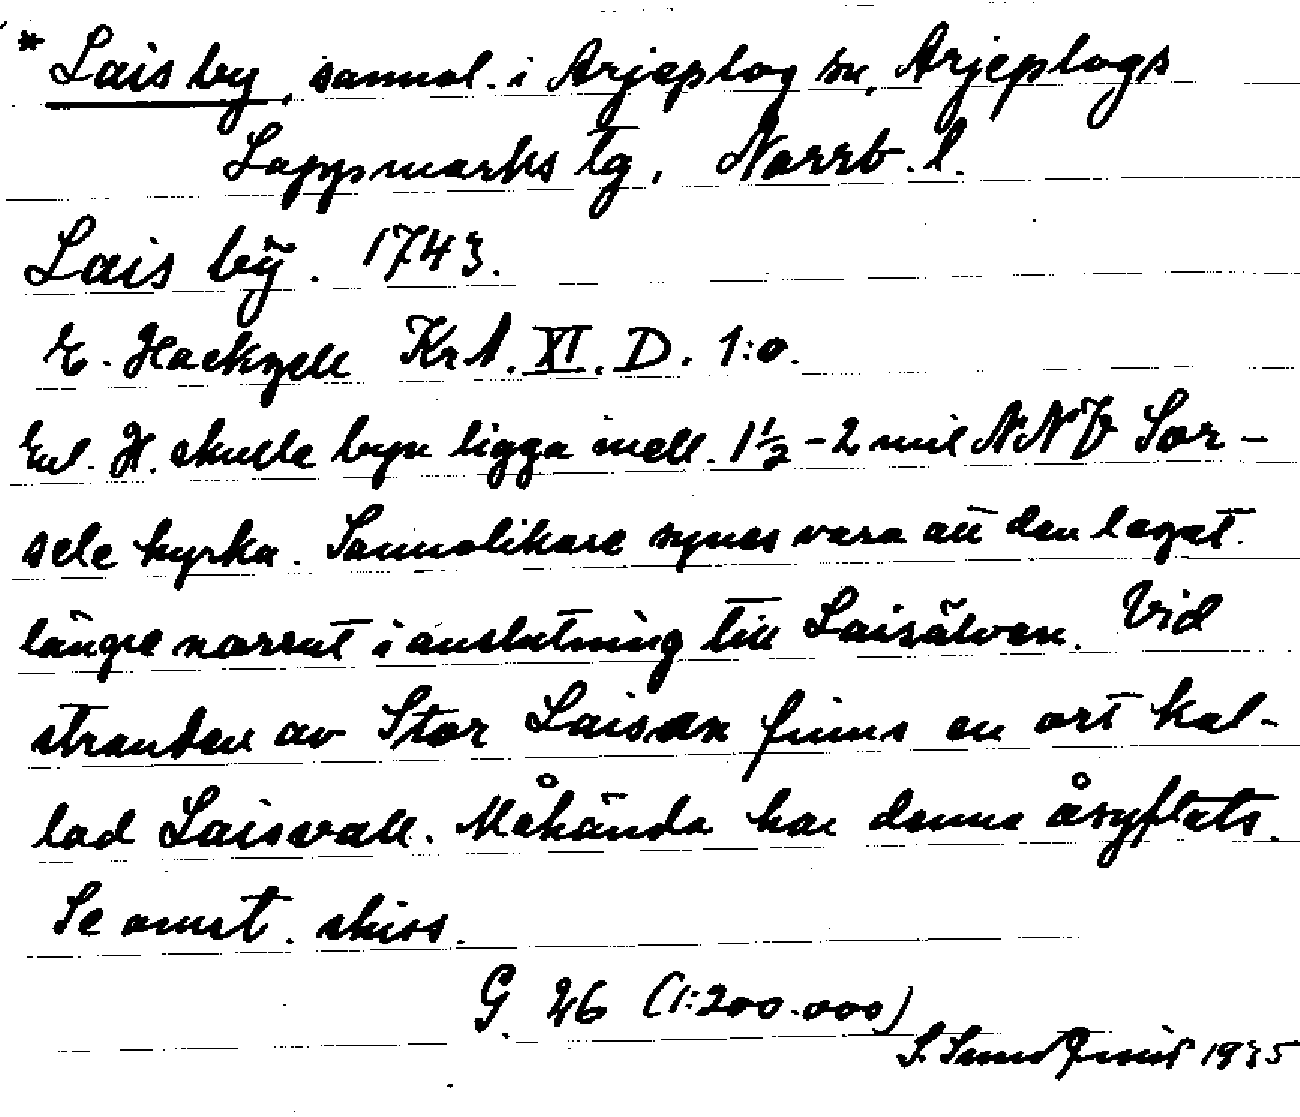 * Lais by, sannol. i Arjeplog sn, Arjeplogs
Lappmarks tg. Norrb. l.
Lais bÿ. 1743.
E. Hackzell KrA. XI. D. 1:o.
Enl. H. skulle byn ligga mell. 1½-2 mil NNV Sor-
sele kyrka. Sannolikare synes vara att den legat
längre norrut i anslutning till Laisälven. Vid
stranden av Stor Laisan finns en ort kal-
lad Laisvall. Måhända har denna åsyftats.
Se omst. skiss.
G. 26 (1:200.000)
S. Sundquist 1935